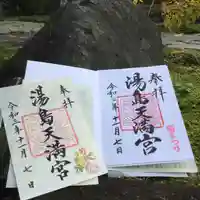 奉拝
湯島天満宮
令和三年十一月七日
奉拝
湯島天満宮
令和三年十一月七日